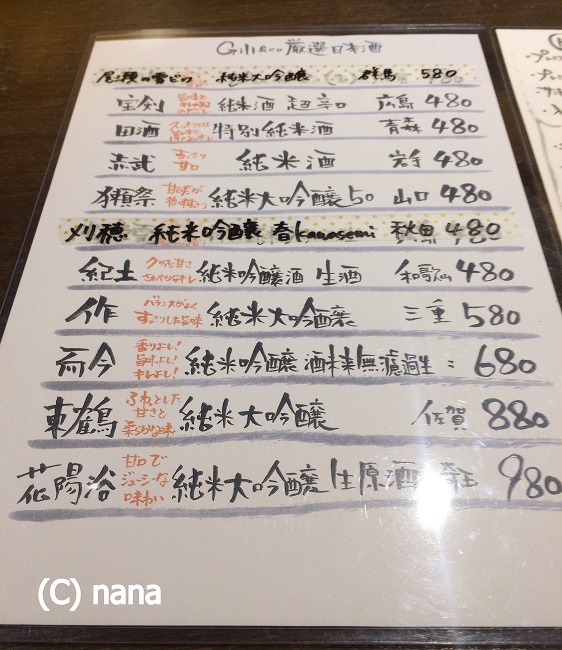 Gili&co 厳選日本酒
尾瀬の雪どけ 純米大吟醸 群馬 580
宝剣 純米酒 超辛口 広島 480
田酒 特別純米酒 青森 480
赤武 すっきり甘口 純米酒 岩手 480
獺祭 純米大吟醸50 山口 480
刈穂 純米吟醸 春kawasemi 秋田 480
紀土 純米吟醸酒 生酒 和歌山 480
作 バランスがよくすっきりした旨味 純米大吟醸 三重 580
而今 香りよし!旨味よし!キレよし! 純米吟醸 無濾過生 680
東鶴 ふわっとした甘さと柔らかな味 純米大吟醸 佐賀 880
花陽浴 甘口でジューシーな味わい 純米大吟醸 生原酒 埼玉 980
(C) nana